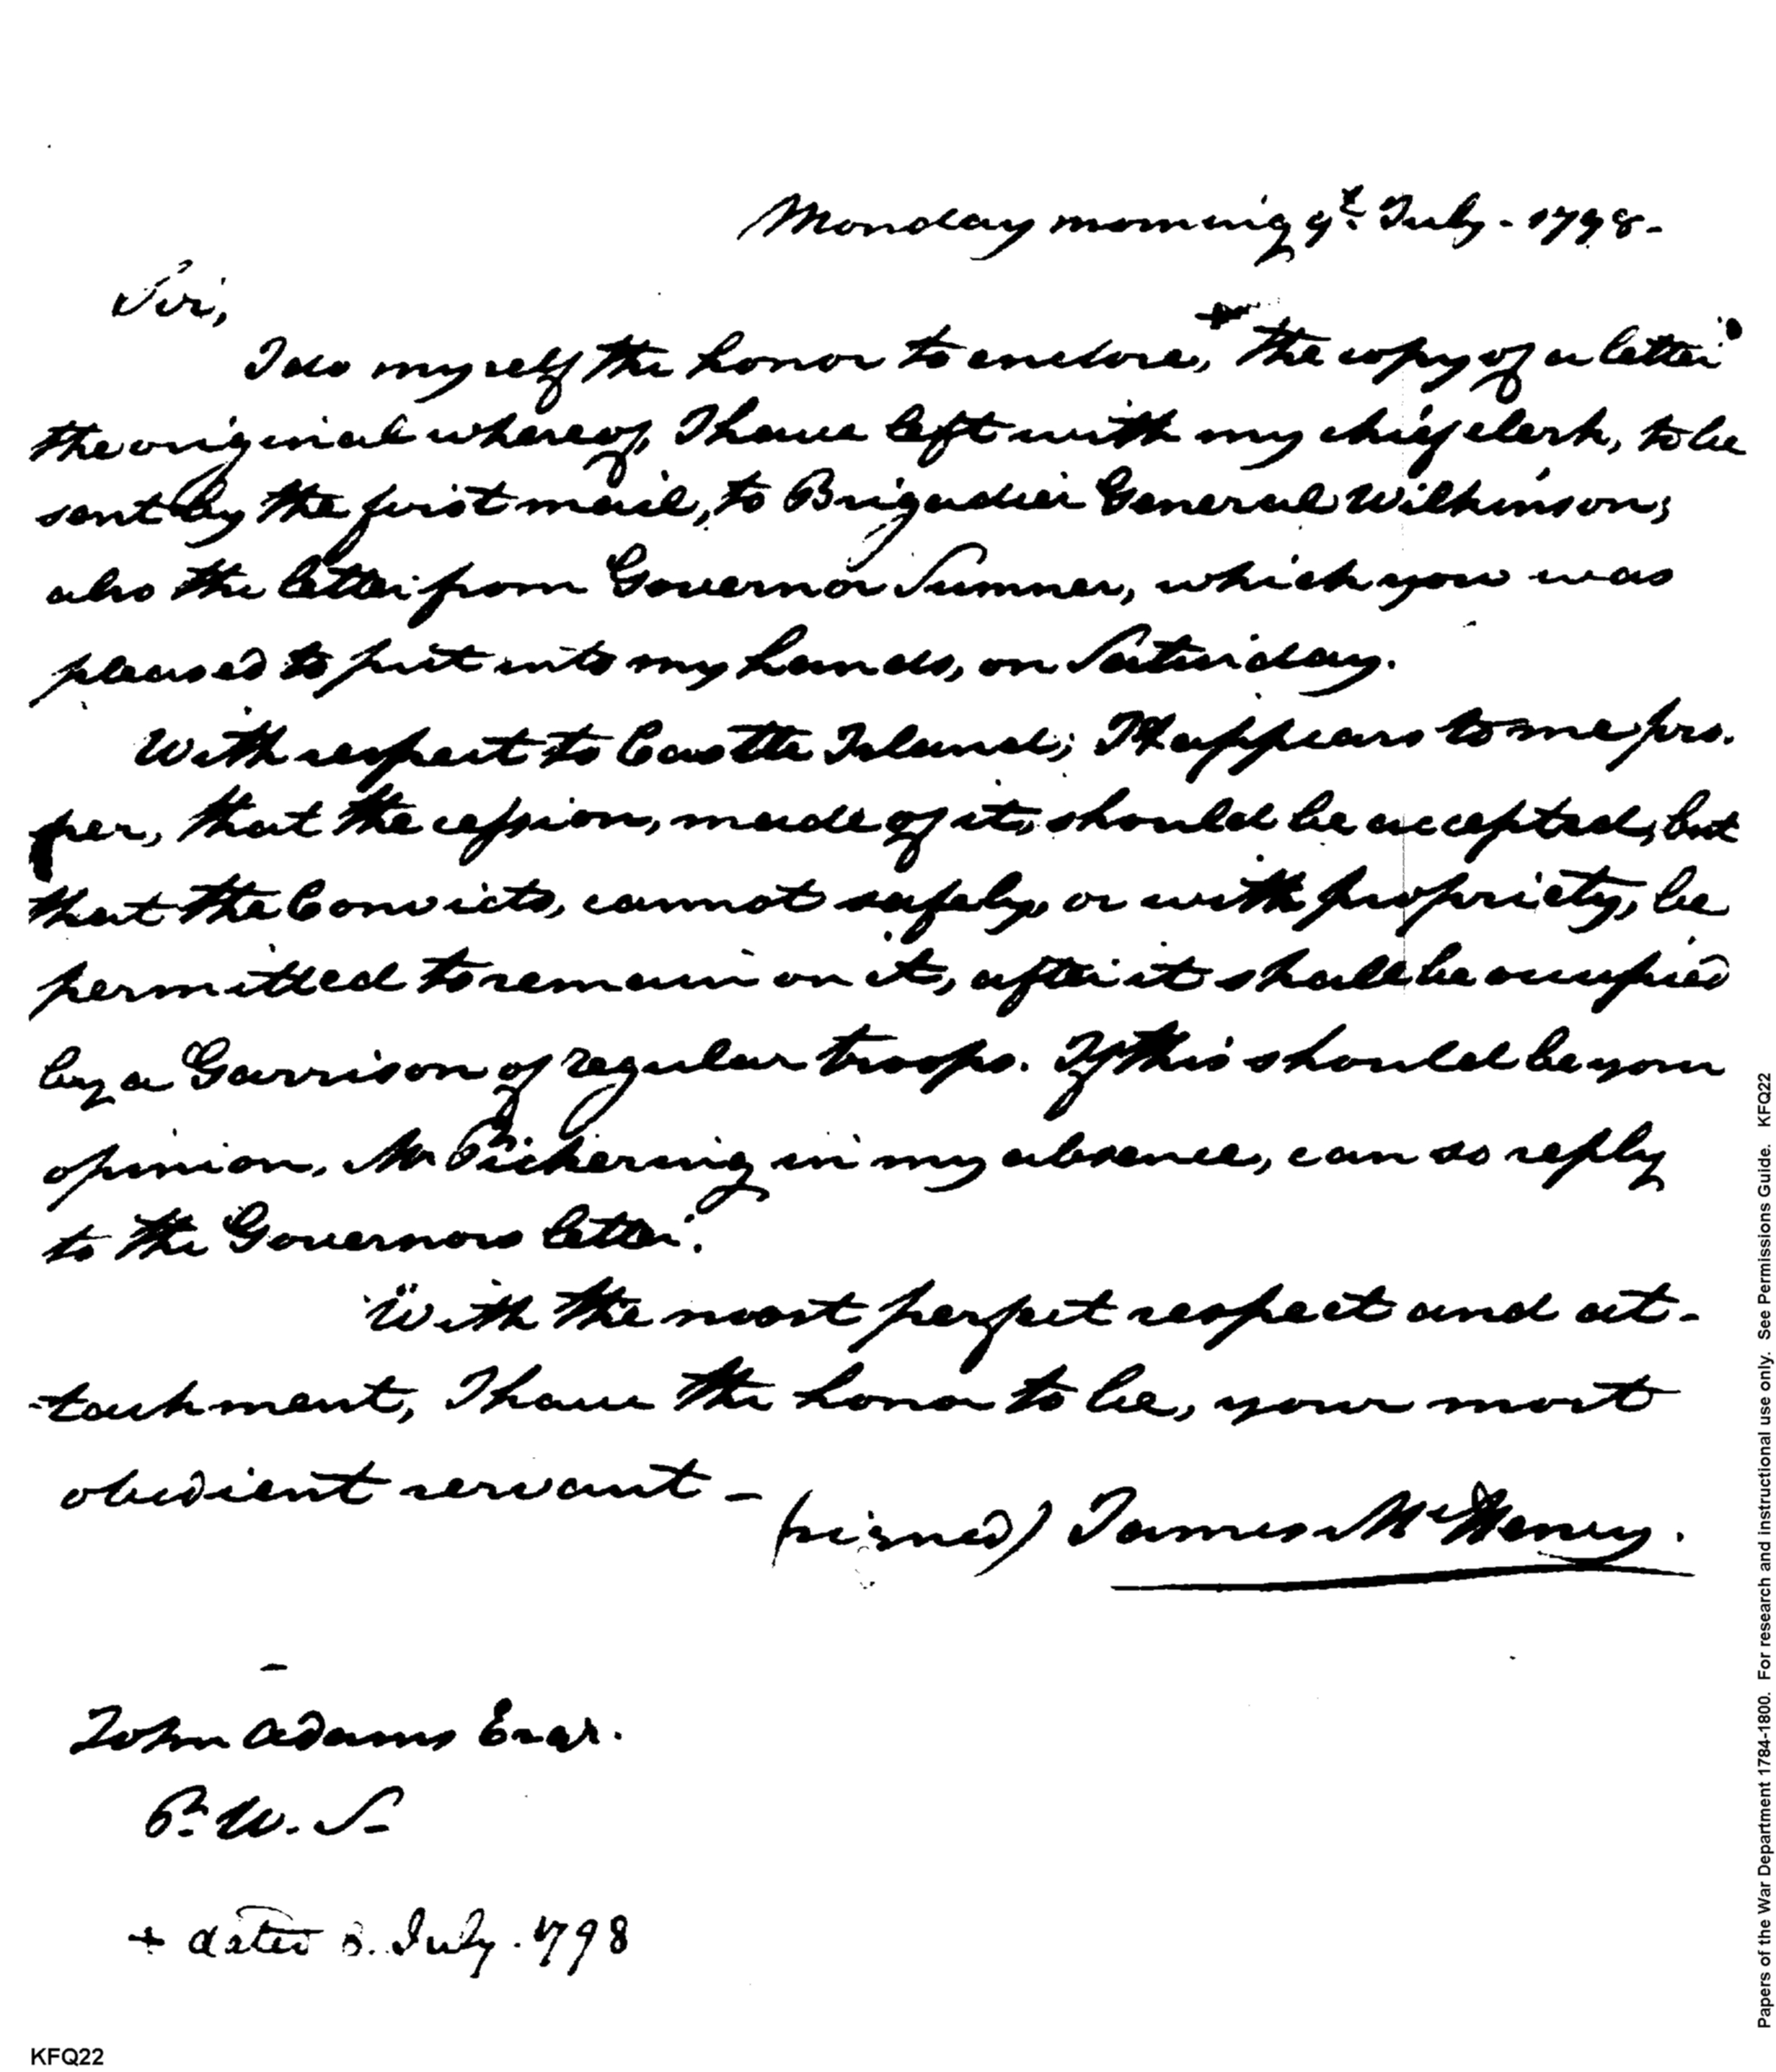 Monday morning 9th July - 1798 -
Sir,
I do myself the honor to enclose, + the copy of a letter
the original whereof, I have left with my chief clerk, to be
sent by the first mail, to Brigadier General Wilkinson;
also the letter from Governor Sumner, which you was
pleased to put into my hands, on Saturday.
With respect to Castle Island; It appears to me pro-
per, that the cession, made of it, should be accepted, but
that the Convicts, cannot safely, or with propriety, be
permitted to remain on it, after it shall be occupied
by a Garrison of regular troops. If this should be your
opinion, Mr Pickering in my absence, can so reply
to the Governors letter.
With the most perfect respect and at-
-tachment, I have the honor to be, your most
obedient servant -
(signed) James McHenry.
John Adams Esqr.
P. U. S-
+ dated 8. July. 1798
KFQ22
Papers of the War Department 1784-1800. For research and instructional use only. See Permissions Guide. KFQ22